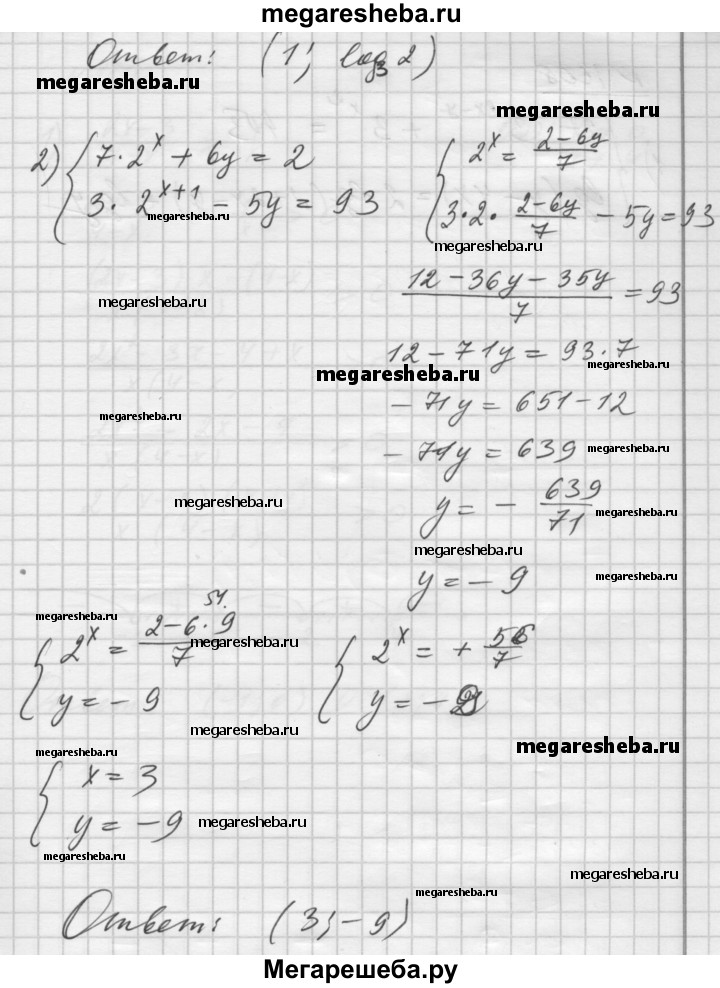 megaresheba.ru
Ответ: (1; log₃ 2)
megaresheba.ru
megaresheba.ru
2) { 7·2ˣ + 6y = 2
3·2ˣ⁺¹ − 5y = 93
megaresheba.ru
{ 2ˣ = (2−6y)/7
3·2·(2−6y)/7 − 5y = 93
megaresheba.ru
megaresheba.ru
(12 − 36y − 35y)/7 = 93
12 − 71y = 93·7
megaresheba.ru
megaresheba.ru
− 71y = 651 − 12
megaresheba.ru
− 71y = 639
megaresheba.ru
megaresheba.ru
y = − 639/71
megaresheba.ru
megaresheba.ru
y = − 9
megaresheba.ru
54
megaresheba.ru
{ 2ˣ = (2−6·9)/7
megaresheba.ru
y = − 9
{ 2ˣ = + 56/7
y = − 9
megaresheba.ru
megaresheba.ru
megaresheba.ru
{ x = 3
y = −9
megaresheba.ru
megaresheba.ru
megaresheba.ru
megaresheba.ru
Ответ: (3; −9)
Мегарешеба.ру